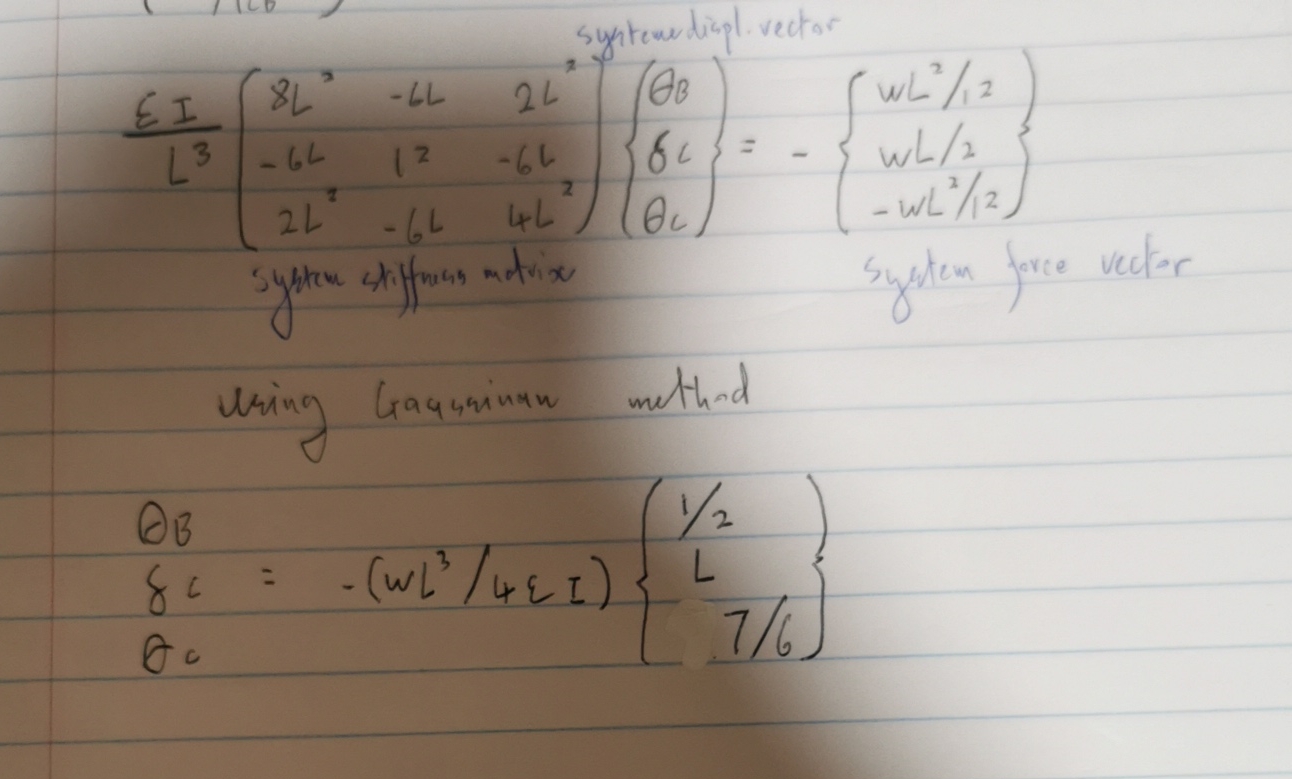 system displ. vector
EI/L³ ( 8L² -6L 2L² ) { θB } = - { wL²/12 }
( -6L 12 -6L ) { δc } { wL/2 }
( 2L² -6L 4L² ) { θc } { -wL²/12 }
system stiffness matrix system force vector
Using Gaussinan method
θB { 1/2 }
δc = -(wL³/4EI) { L }
θc { 7/6 }